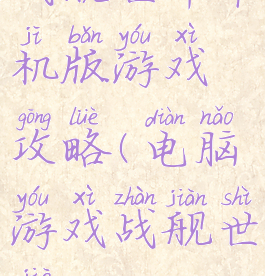 jī bǎn yóu xì
机版游戏
gōng lüè diàn nǎo
攻略(电脑
yóu xì zhàn jiàn shì
游戏战舰世